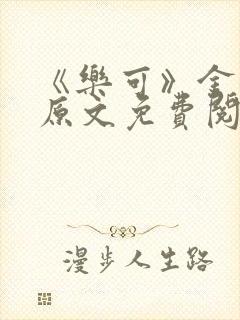 《樂可》金
原文免費閱
漫步人生路